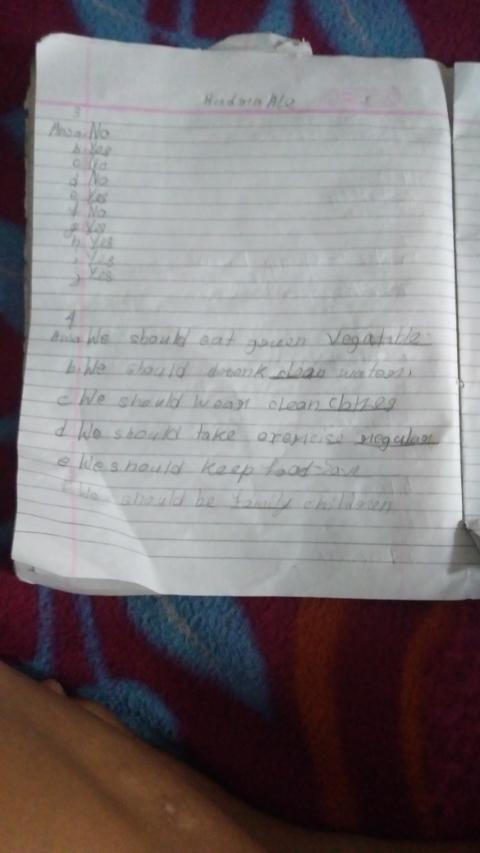 3
Ans a. No
b. Yes
c.
d No
e Yes
f No
g Yes
h Yes
i Yes
j Yes
4
Ans a. We should eat green Vegatable
b. We should drenk clean water.
c We should wear clean clohes
d We should take exercise regular
e We should keep food
f We should be family children